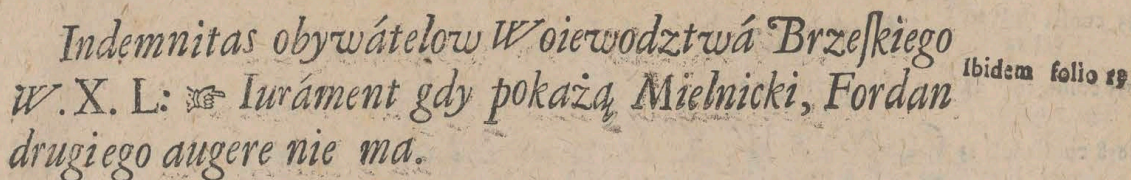 Indemnitas obywátelow Woiewodztwá Brzeſkiego
W.X.L: ☞ Iuráment gdy pokażą Mielnicki, Fordan
drugiego augere nie ma.
Ibidem folio 19